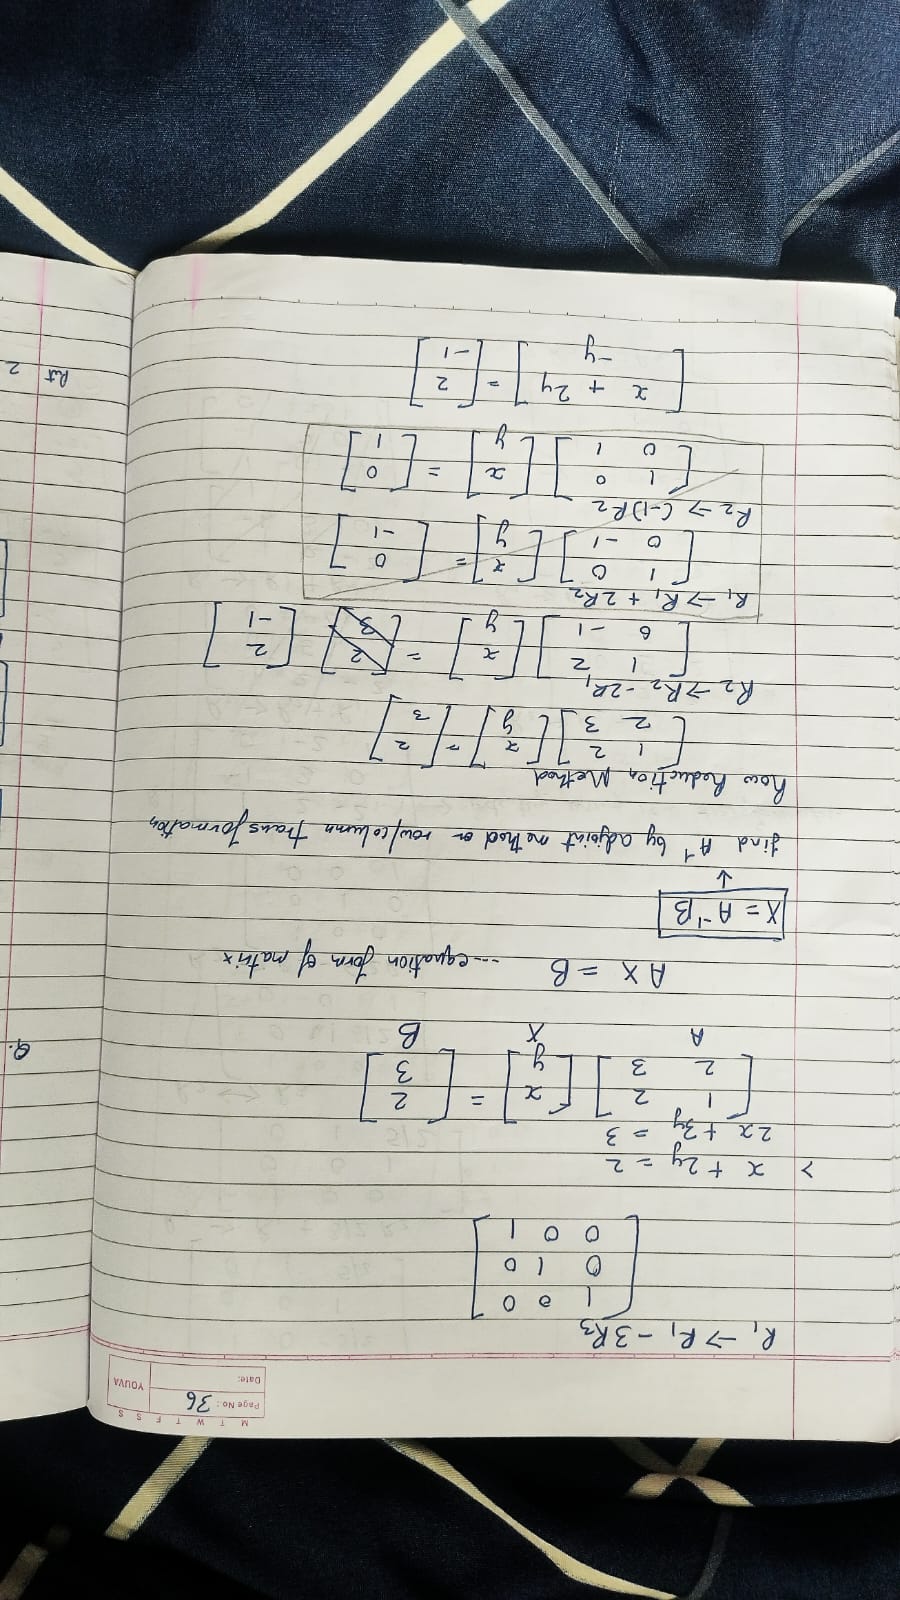 M T W T F S S
Page No.: 36
Date:
YOUVA
R₁ → R₁ - 3R₃
[ 1 0 0 ]
[ 0 1 0 ]
[ 0 0 1 ]
> x + 2y = 2
2x + 3y = 3
[ 1 2 ] [ x ] = [ 2 ]
[ 2 3 ] [ y ] [ 3 ]
A X B
AX = B ---equation form of matrix
X = A⁻¹B
↓
find A⁻¹ by adjoint method or row/column transformation
Row Reduction Method
[ 1 2 ] [ x ] = [ 2 ]
[ 2 3 ] [ y ] [ 3 ]
R₂ → R₂ - 2R₁
[ 1 2 ] [ x ] = [ 2 ] [ 2 ]
[ 0 -1 ] [ y ] [ 3 ] [ -1 ]
R₁ → R₁ + 2R₂
[ 1 0 ] [ x ] = [ 0 ]
[ 0 -1 ] [ y ] [ -1 ]
R₂ → (-1)R₂
[ 1 0 ] [ x ] = [ 0 ]
[ 0 1 ] [ y ] [ 1 ]
[ x + 2y ] = [ 2 ]
[ -y ] [ -1 ]
Q.
Put 2